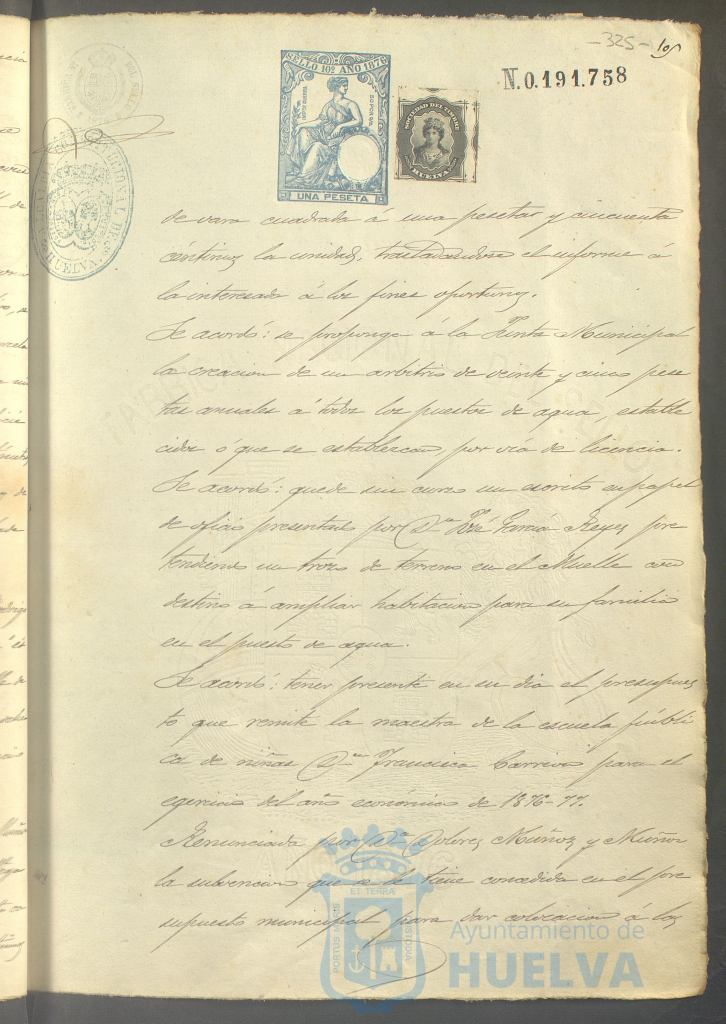 -325- 105
N.0.191.758
SELLO 10º AÑO 1876
UNA PESETA
SOCIEDAD DEL TIMBRE
HUELVA
de vara cuadrada á una pesetas y cincuenta
céntimos la unidad, trasladandose el informe á
la interesada á los fines oportunos.
Se acordó: se proponga á la Junta Municipal
la creacion de un arbitrio de veinte y cinco pese
tas anuales á todos los puestos de agua, estable
cidos ó que se establezcan, por via de licencia.
Se acordó: quede sin curso un escrito en papel
de oficio presentado por Dn José García Reyes pre
tendiendo un trozo de terreno en el Muelle con
destino á ampliar habitacion para su familia
en el puesto de agua.
Se acordó: tener presente en su dia el presupues
to que remite la maestra de la escuela públi
ca de niñas Dña Francisca Carrion para el
egercicio del año económico de 1876-77.
Renunciada por Dª Dolores Muñoz y Muñoz
la subvencion que se le tiene concedida en el pre
supuesto municipal para dar educacion á las
PORTUS MARIS ET TERRAE CUSTODIA
Ayuntamiento de
HUELVA